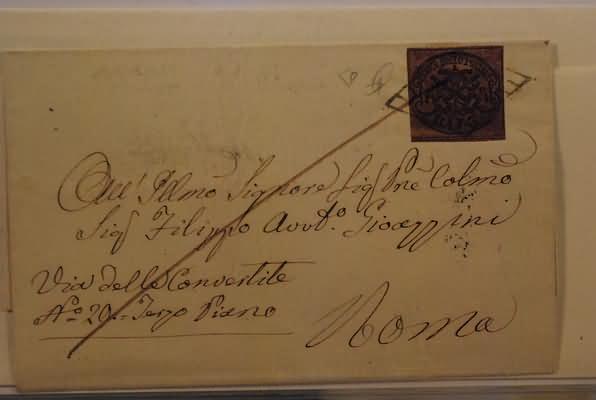 All' Illmo Signore Sig Pne Colmo
Sig Filippo Avvto. Gioazzini
Via delle Convertite
No. 20.= Terzo Piano
Roma